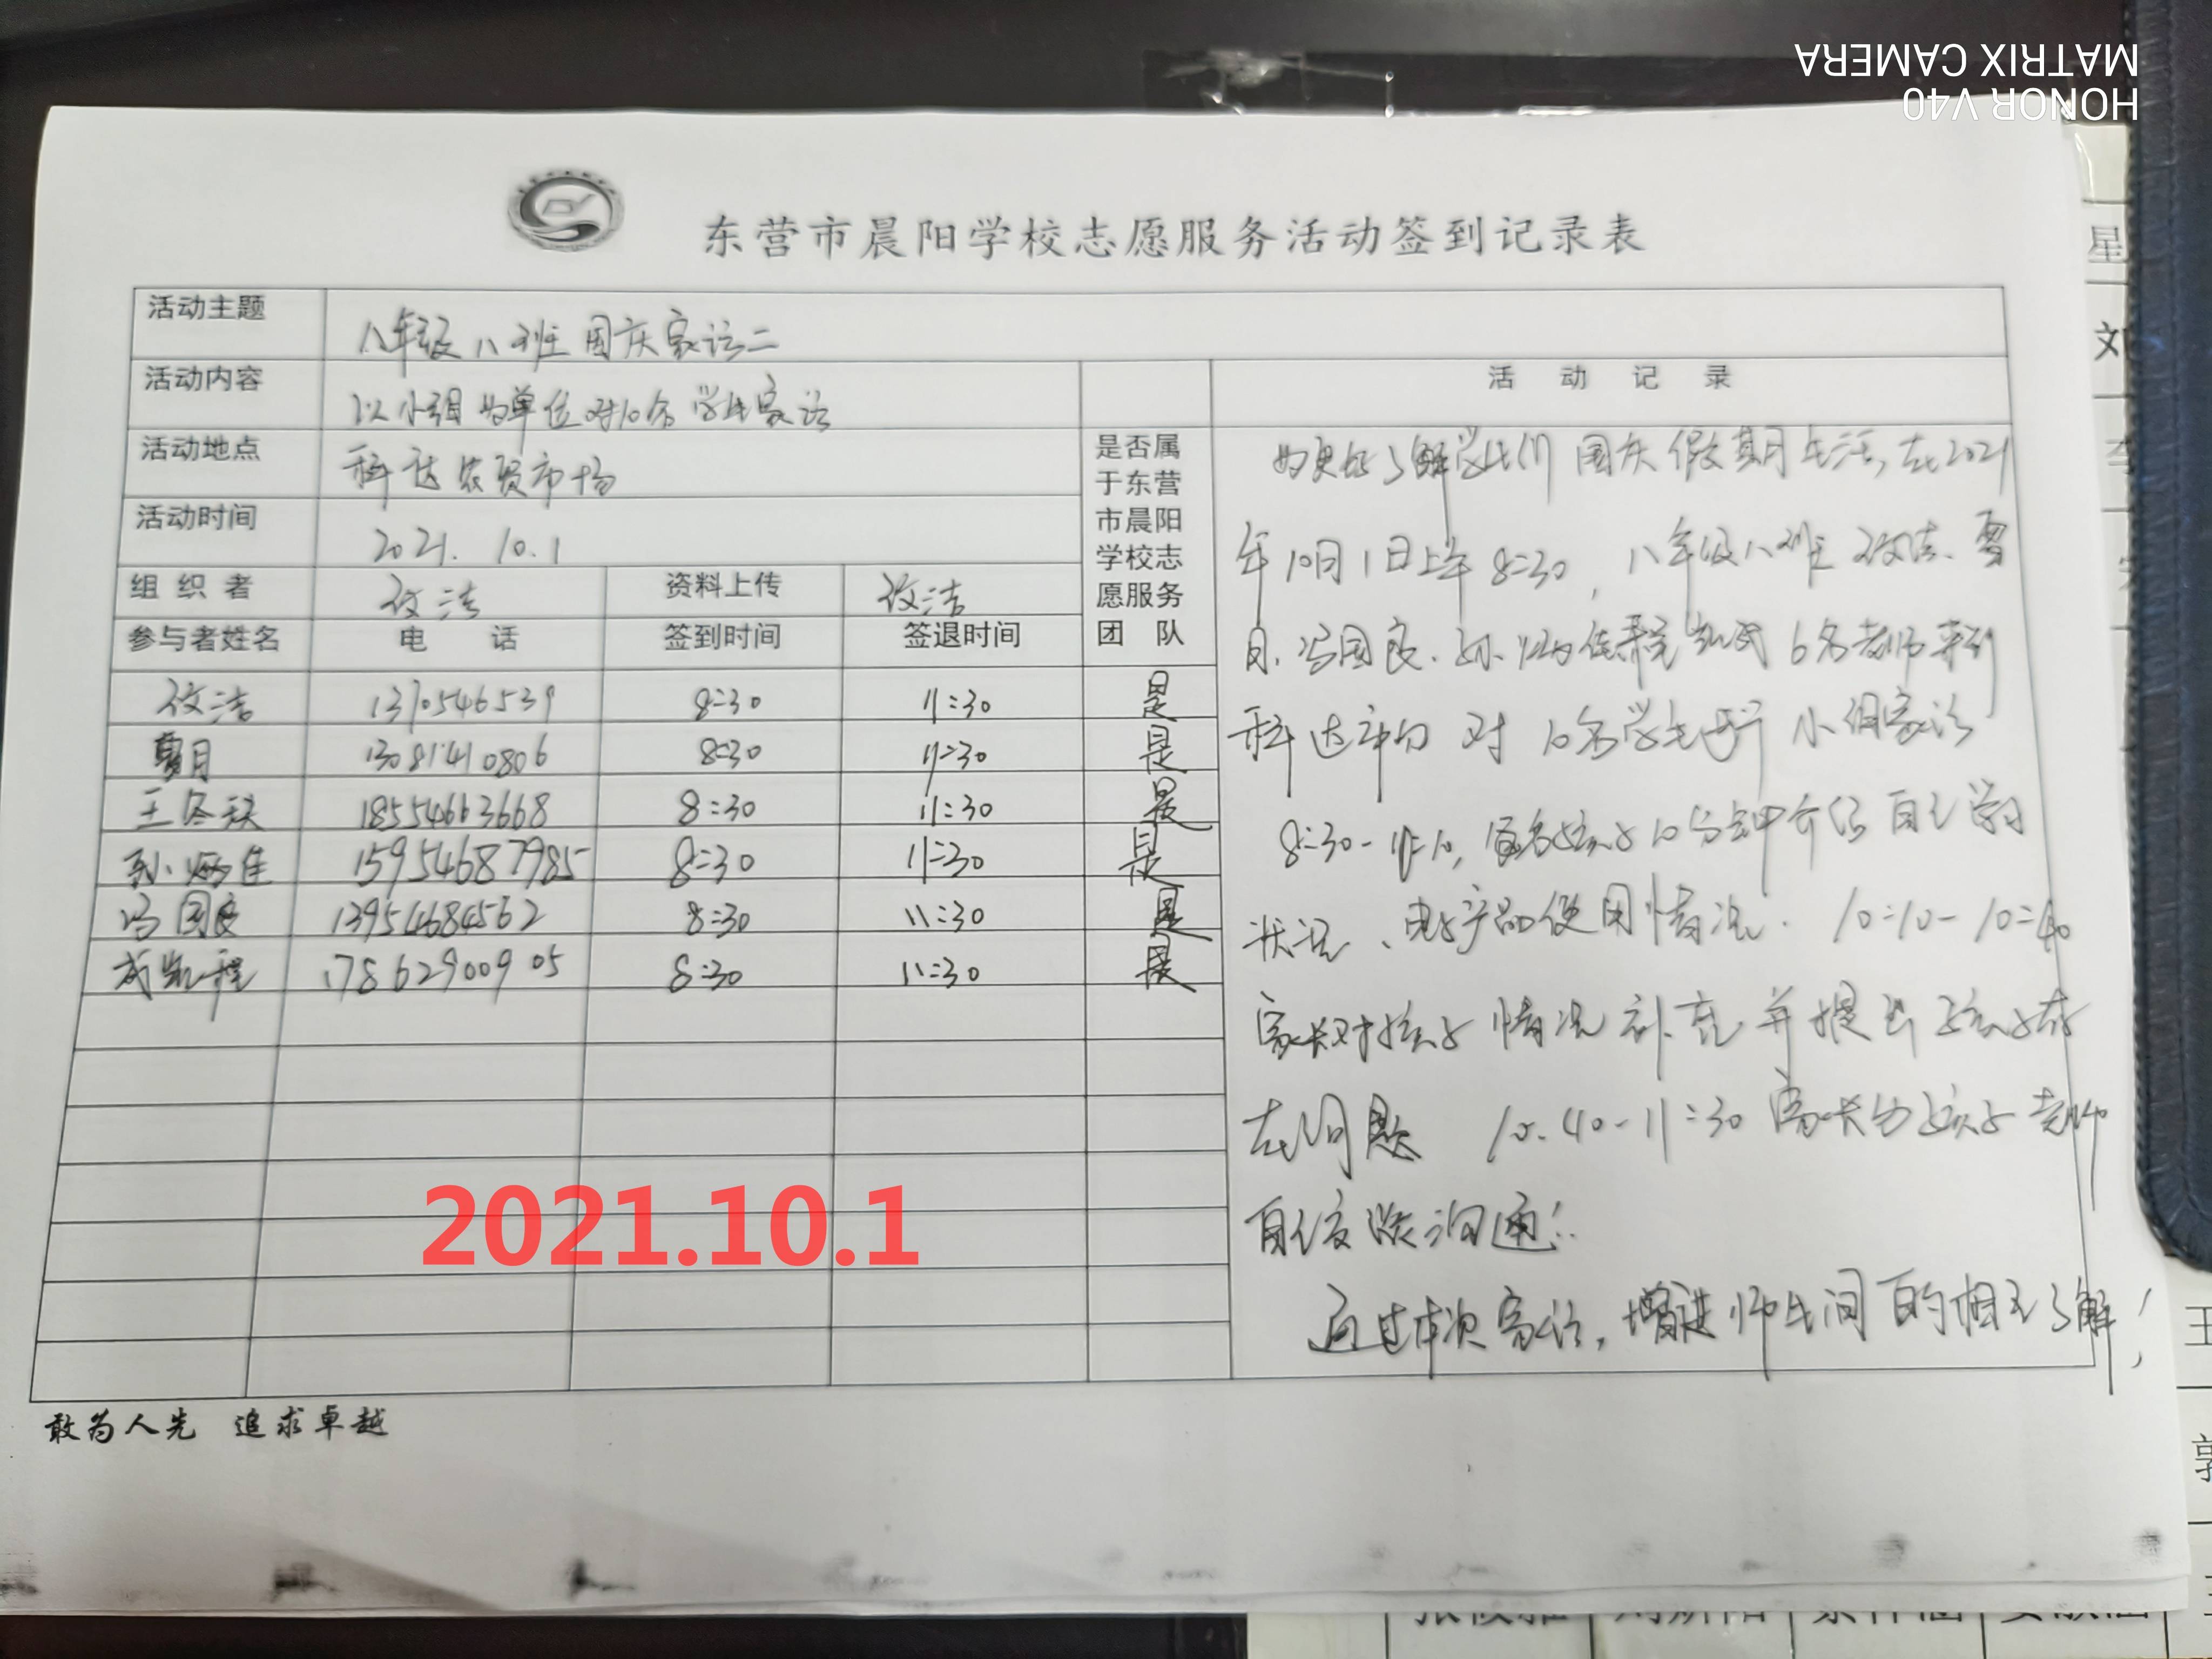 MATRIX CAMERA
HONOR V40
东营市晨阳学校志愿服务活动签到记录表
活动主题 八年级八班国庆家访二
活动内容 以小组为单位对10名学生家访
活动地点 科达农贸市场
活动时间 2021. 10.1
组 织 者 资料上传
参与者姓名 电 话 签到时间 签退时间
是否属
于东营
市晨阳
学校志
愿服务
团 队
1370546539 8:30 11:30 是
夏月 13081410806 8:30 11:30 是
王冬 18554663668 8:30 11:30 是
孙炳佳 15954687985 8:30 11:30 是
冯国良 13954684562 8:30 11:30 是
成凯程 17862900905 8:30 11:30 是
活 动 记 录
为更好了解学生们国庆假期生活,在2021
年10月1日上午8:30,八年级八班
月、冯国良、孙炳佳 6名老师来到
科达市场对10名学生进行小组家访
8:30-10,每名孩子10分钟介绍自己学习
状况、电子产品使用情况. 10:10-10:40
家长对孩子情况补充并提出孩子存
在问题 10:40-11:30家长与孩子老师
自由交谈沟通!
通过本次家访,增进师生间的相互了解!
2021.10.1
敢为人先 追求卓越
星
刘
李
王
郭